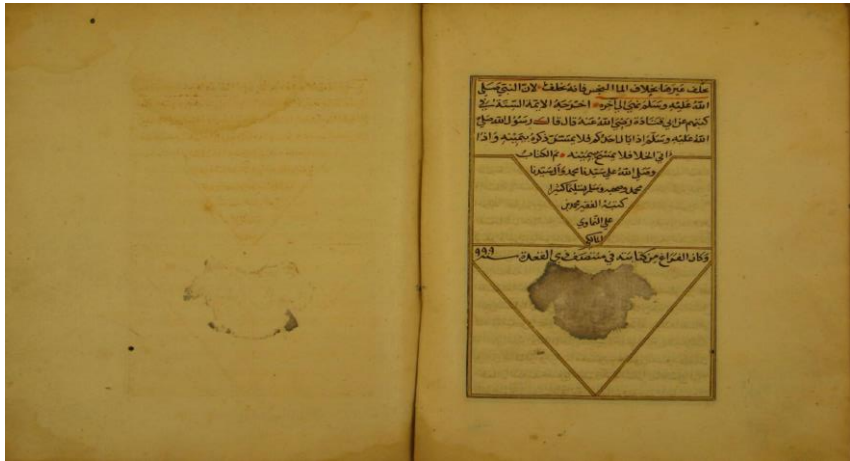 خلف غيرها بخلاف الماء البعض فانه خلف لان النبي صلى
الله عليه وسلم نهى اخرجه الائمة الستة في
كتبهم عن ابي قتادة رضي الله عنه قال قال رسول الله صلى
الله عليه وسلم اذا بال احدكم فلا يمسن ذكره بيمينه واذا
اتى الخلا فلا يتمسح بيمينه تم الكتاب
وصلى الله على سيدنا محمد وال سيدنا
محمد وصحبه وسلم تسليما كثيرا
كتبه الفقير محمد بن
علي
المالكي
وكان الفراغ من كتابته في منتصف ذي القعدة سنة ٩٩٩